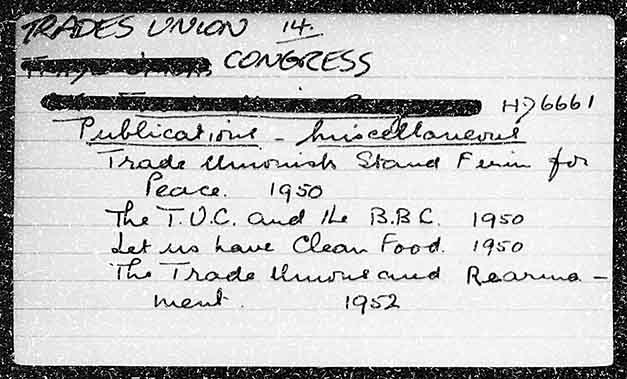 TRADES UNION 14.
CONGRESS
HD6661
Publications - Miscellaneous
Trade Unionists Stand Firm for
Peace. 1950
The T.U.C. and the B.B.C. 1950
Let us have Clean Food. 1950
The Trade Unions and Rearma-
ment. 1952